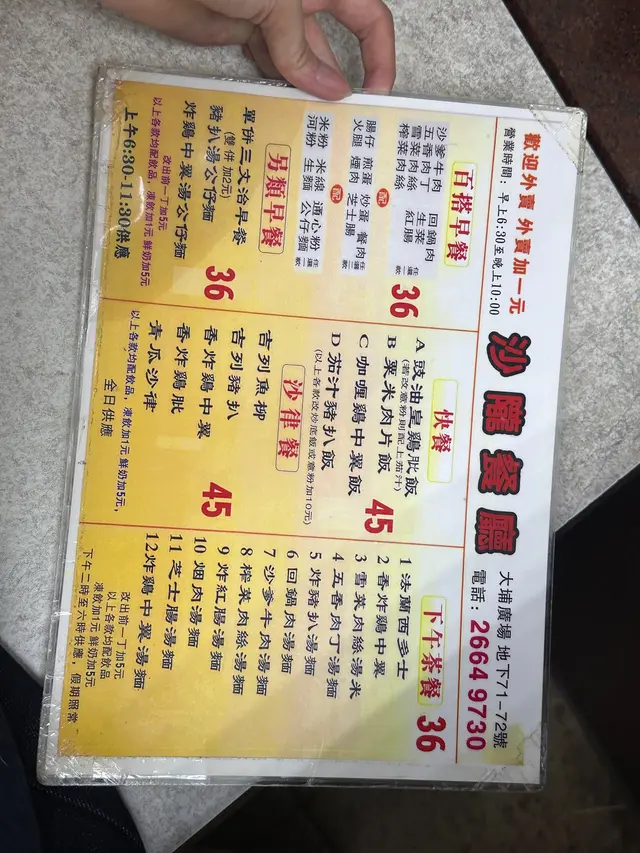 歡迎外賣 外賣加一元
營業時間：早上6:30至晚上10:00
沙龍餐廳
大埔廣場 地下71-72號
電話：2664 9730
百搭早餐
沙爹牛肉 回鍋肉
五香肉丁 生菜
雪菜肉絲 紅腸
榨菜肉絲
任選一款
36
配
腸仔 煎蛋 炒蛋 餐肉
火腿 煙肉 芝士腸
任選一款
配
米粉 米線 通心粉
河粉 生麵 公仔麵
任選一款
另類早餐
單併三大治早餐
(雙併加2元)
豬扒湯公仔麵
炸鷄中翼湯公仔麵
36
改出前一丁加5元
以上各款均配飲品，凍飲加1元 鮮奶加5元
上午6:30-11:30供應
快餐
A 豉油皇鷄肶飯
(若改意粉則配上茄汁)
B 粟米肉片飯
C 咖喱鷄中翼飯
D 茄汁豬扒飯
45
(以上各款改炒底飯或意粉加10元)
沙律餐
吉列魚柳
吉列豬扒
香炸鷄中翼
香炸鷄肶
青瓜沙律
45
以上各款均配飲品，凍飲加1元 鮮奶加5元，
全日供應
下午茶餐 36
1 法蘭西多士
2 香炸鷄中翼
3 雪菜肉絲湯米
4 五香肉丁湯麵
5 炸豬扒湯麵
6 回鍋肉湯麵
7 沙爹牛肉湯麵
8 榨菜肉絲湯麵
9 炸紅腸湯麵
10 烟肉湯麵
11 芝士腸湯麵
12 炸鷄中翼湯麵
改出前一丁加5元
以上各款均配飲品
凍飲加1元 鮮奶加5元
下午二時至六時供應，假期照常